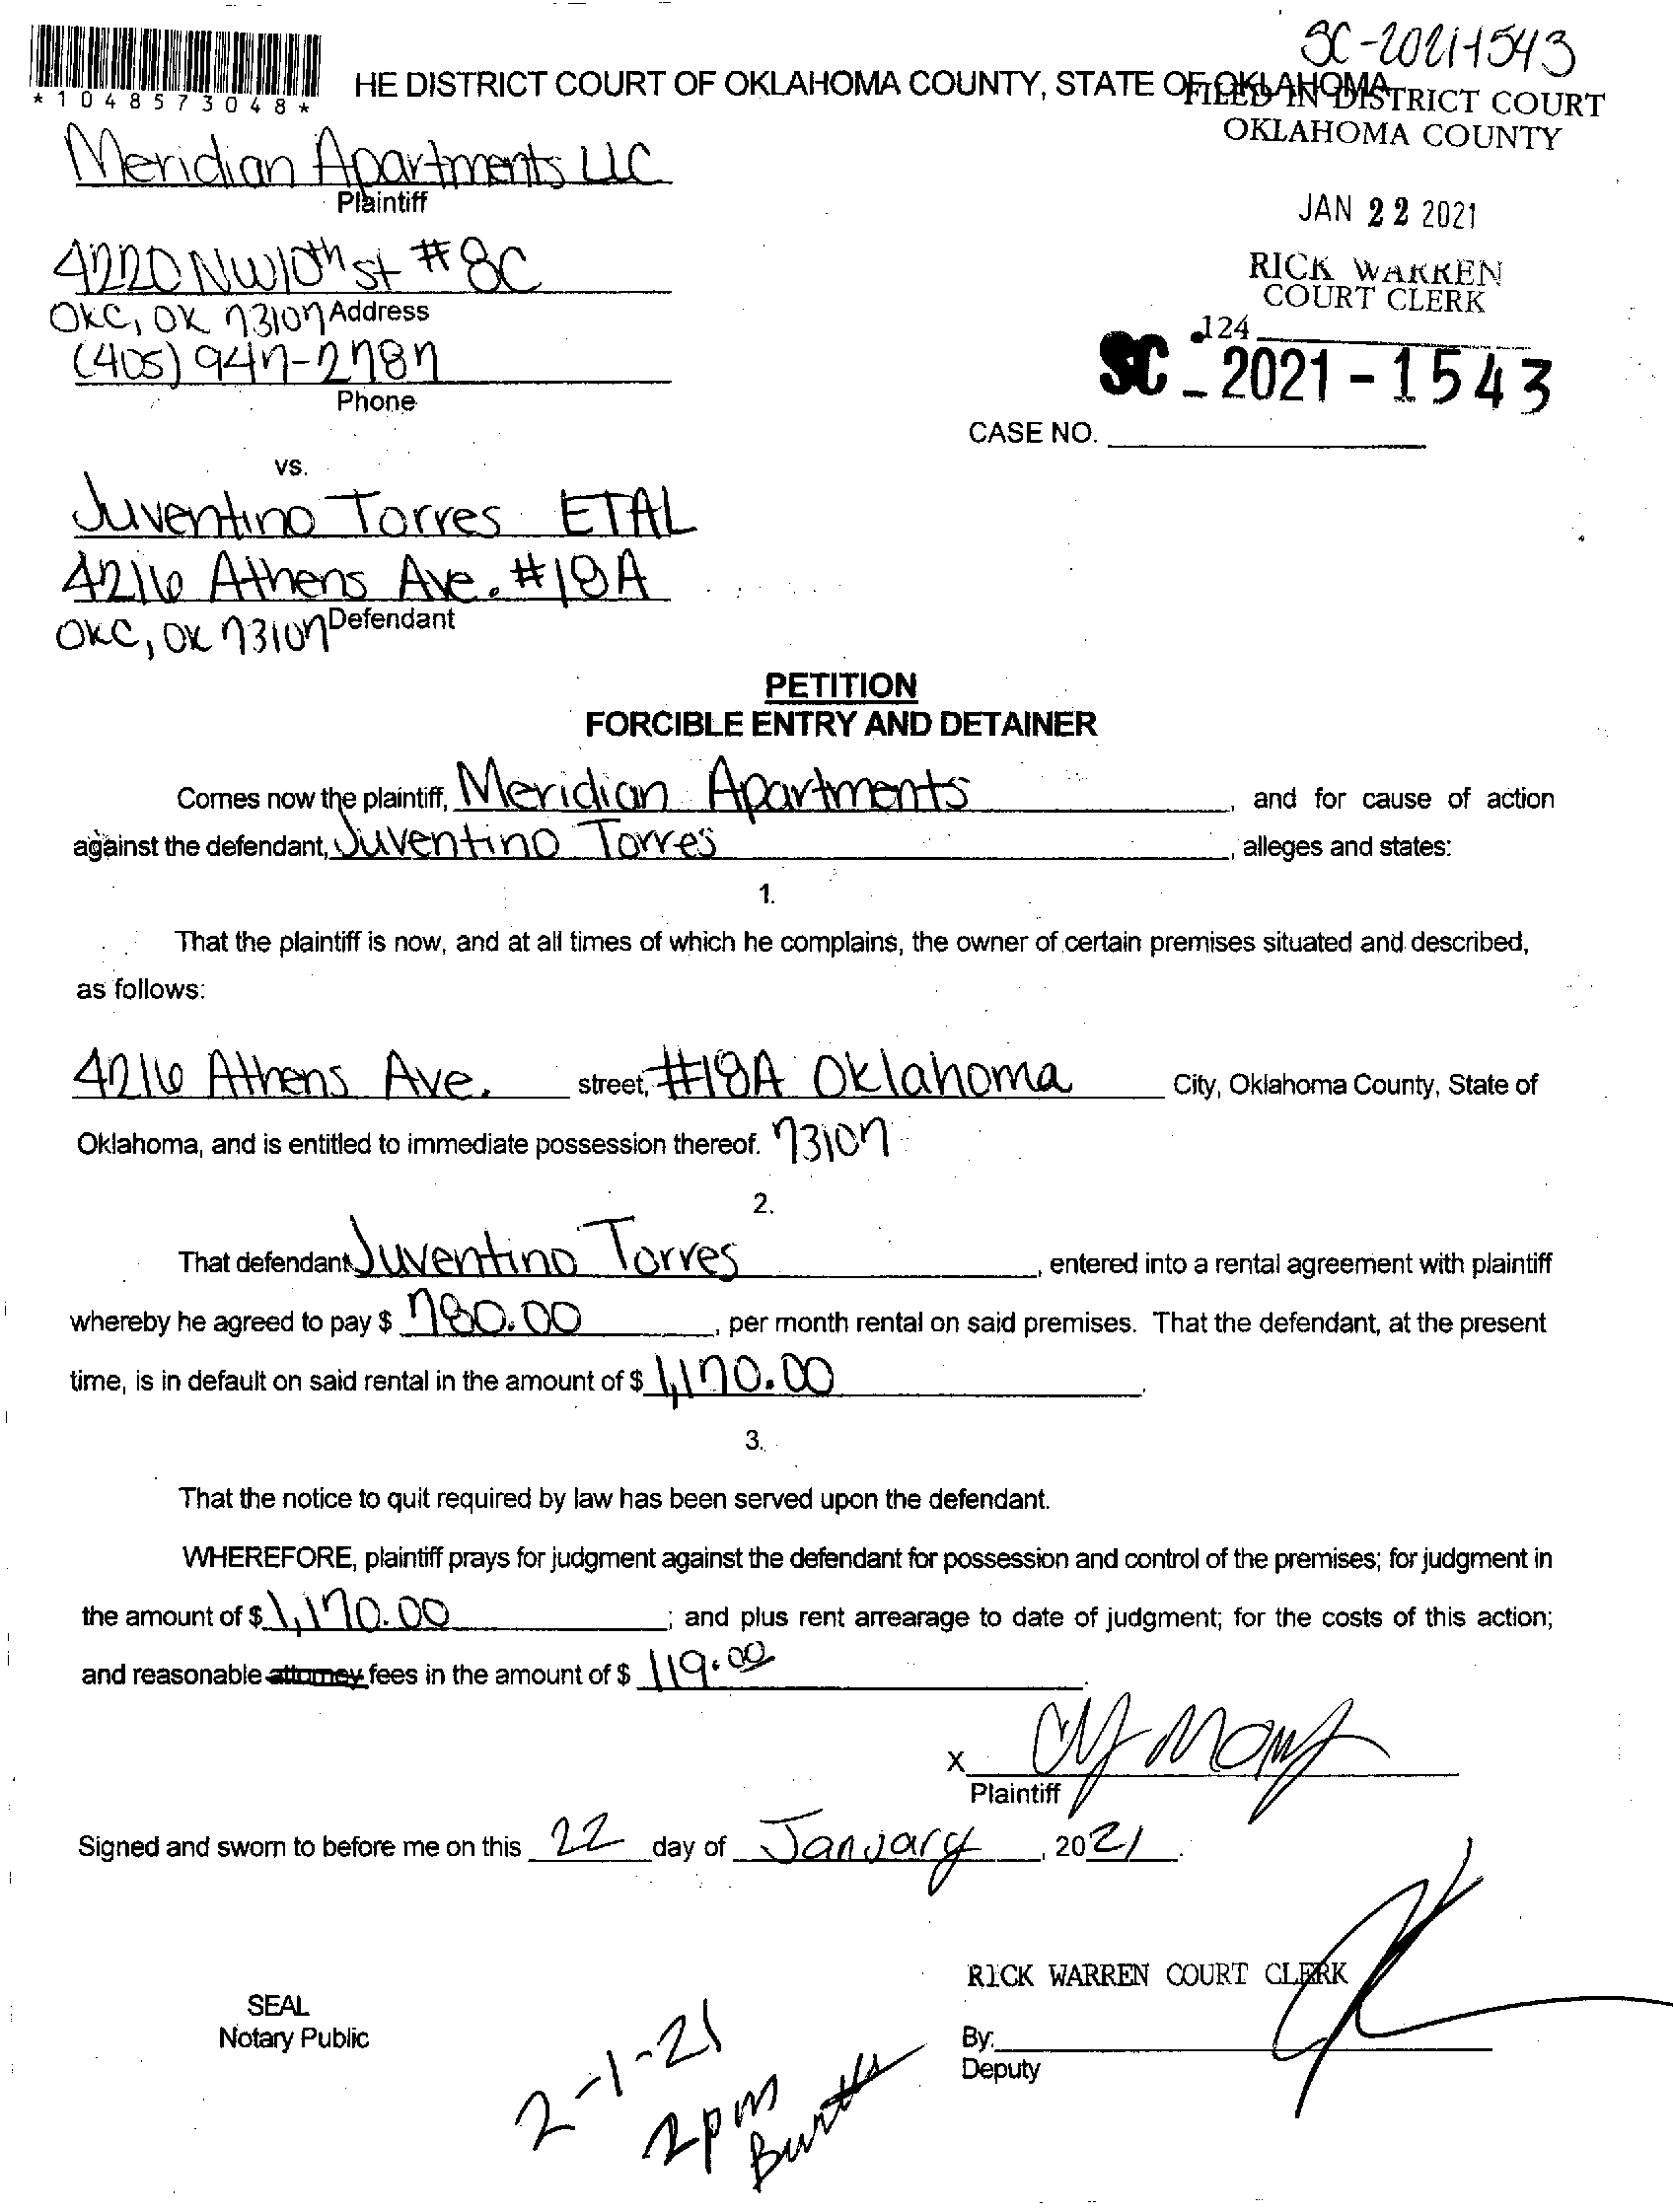 SC-2021-1543
*1048573048*
HE DISTRICT COURT OF OKLAHOMA COUNTY, STATE OF OKLAHOMA
FILED IN DISTRICT COURT
OKLAHOMA COUNTY
Meridian Apartments LLC
Plaintiff
JAN 22 2021
4220 NW 10th st #8C
RICK WARREN
COURT CLERK
OKC, OK 73107 Address
124
(405) 947-2787
SC - 2021 - 1543
Phone
CASE NO.
vs.
Juventino Torres ETAL
4216 Athens Ave. #18A
OKC, OK 73107 Defendant
PETITION
FORCIBLE ENTRY AND DETAINER
Comes now the plaintiff, Meridian Apartments, and for cause of action
against the defendant, Juventino Torres, alleges and states:
1.
That the plaintiff is now, and at all times of which he complains, the owner of certain premises situated and described,
as follows:
4216 Athens Ave. street, #18A Oklahoma City, Oklahoma County, State of
Oklahoma, and is entitled to immediate possession thereof. 73107
2.
That defendant Juventino Torres, entered into a rental agreement with plaintiff
whereby he agreed to pay $ 780.00, per month rental on said premises. That the defendant, at the present
time, is in default on said rental in the amount of $ 1,170.00.
3.
That the notice to quit required by law has been served upon the defendant.
WHEREFORE, plaintiff prays for judgment against the defendant for possession and control of the premises; for judgment in
the amount of $ 1,170.00; and plus rent arrearage to date of judgment; for the costs of this action;
and reasonable attorney fees in the amount of $ 119.00.
X
Plaintiff
Signed and sworn to before me on this 22 day of January, 2021.
RICK WARREN COURT CLERK
SEAL
Notary Public
By:
Deputy
2-1-21
2pm